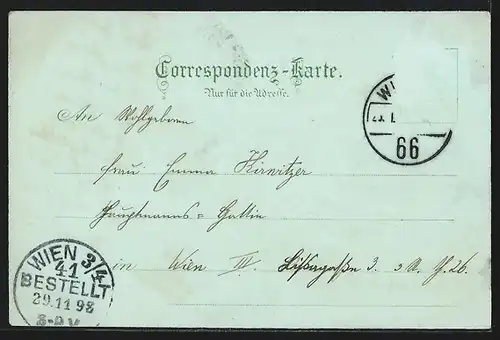 Correspondenz-Karte.
Nur für die Adresse.
WI
66
An Wohlgeboren
Frau Emma Kirnitzer
Hauptmanns=Gattin
in Wien IV. 3. 3 26.
WIEN 3/4
41
BESTELLT
29.11.98
8-9.V